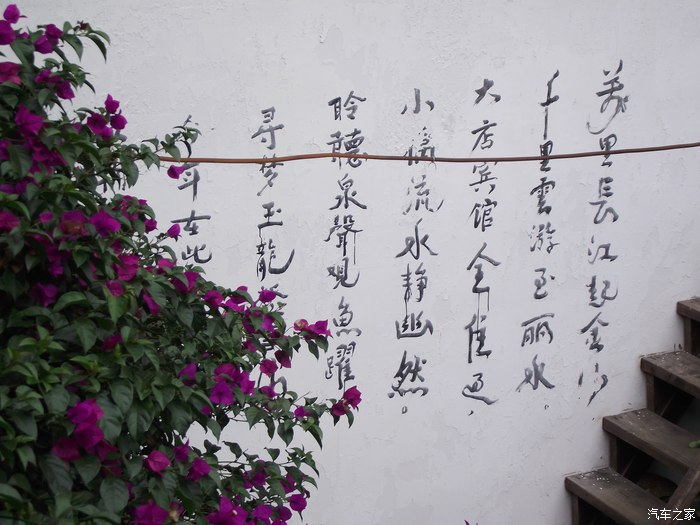 萬里長江起金沙
千里雲游至丽水。
大店宾馆全住过
小橋流水静幽然。
聆聽泉聲观魚躍
寻梦玉龍
在此
汽车之家